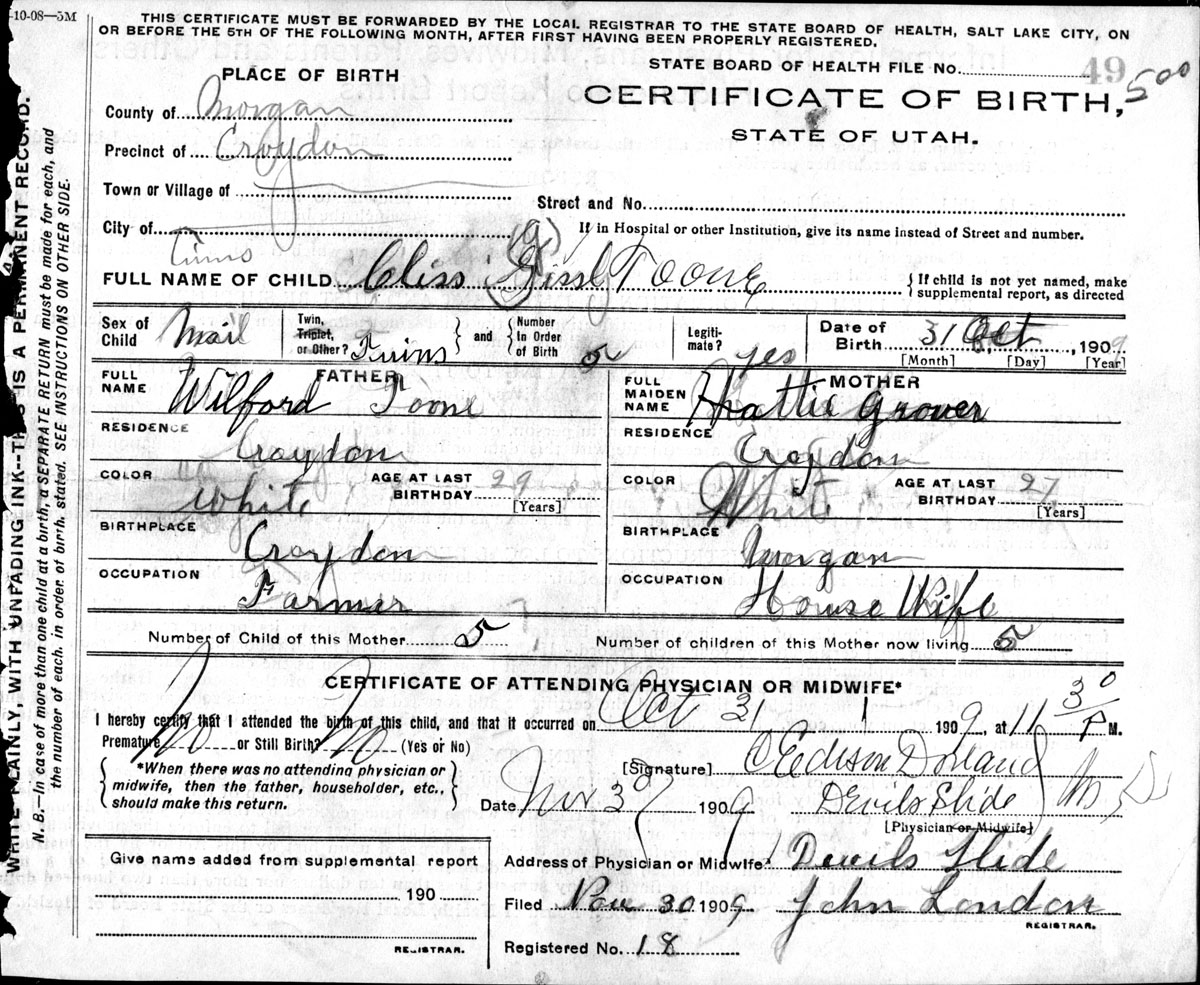 -10-08—5M
THIS CERTIFICATE MUST BE FORWARDED BY THE LOCAL REGISTRAR TO THE STATE BOARD OF HEALTH, SALT LAKE CITY, ON
OR BEFORE THE 5TH OF THE FOLLOWING MONTH, AFTER FIRST HAVING BEEN PROPERLY REGISTERED.
STATE BOARD OF HEALTH FILE No. 49 500
PLACE OF BIRTH
CERTIFICATE OF BIRTH,
STATE OF UTAH.
County of Morgan
Precinct of Croydon
Town or Village of
Street and No.
City of
If in Hospital or other Institution, give its name instead of Street and number.
Twins (g)
FULL NAME OF CHILD Cliss Gissly Toone
{ If child is not yet named, make
supplemental report, as directed
Sex of Child Mail
Twin, Triplet, or Other? Twins } and { Number In Order of Birth 5
Legiti- mate? yes
Date of Birth 31 Oct, 1909
[Month] [Day] [Year]
FATHER
FULL NAME Wilford Toone
MOTHER
FULL MAIDEN NAME Hattie Grover
RESIDENCE Croydon
RESIDENCE Croydon
COLOR White
AGE AT LAST BIRTHDAY 29 [Years]
COLOR White
AGE AT LAST BIRTHDAY 27 [Years]
BIRTHPLACE Croydon
BIRTHPLACE Morgan
OCCUPATION Farmer
OCCUPATION House Wife
Number of Child of this Mother 5
Number of children of this Mother now living 5
CERTIFICATE OF ATTENDING PHYSICIAN OR MIDWIFE*
I hereby certify that I attended the birth of this child, and that it occurred on Oct 31 1909, at 11 30 P M.
Premature No or Still Birth? No (Yes or No)
{ *When there was no attending physician or
midwife, then the father, householder, etc.,
should make this return. }
[Signature] C Edison Dorland M D
Date Nov 30 1909
Devils Slide
[Physician or Midwife]
Give name added from supplemental report
190
REGISTRAR.
Address of Physician or Midwife? Devils Slide
Filed Nov 30 1909 John London
REGISTRAR.
Registered No. 18
WRITE PLAINLY, WITH UNFADING INK--THIS IS A PERMANENT RECORD.
N. B.—In case of more than one child at a birth, a SEPARATE RETURN must be made for each, and
the number of each, in order of birth, stated. SEE INSTRUCTIONS ON OTHER SIDE.